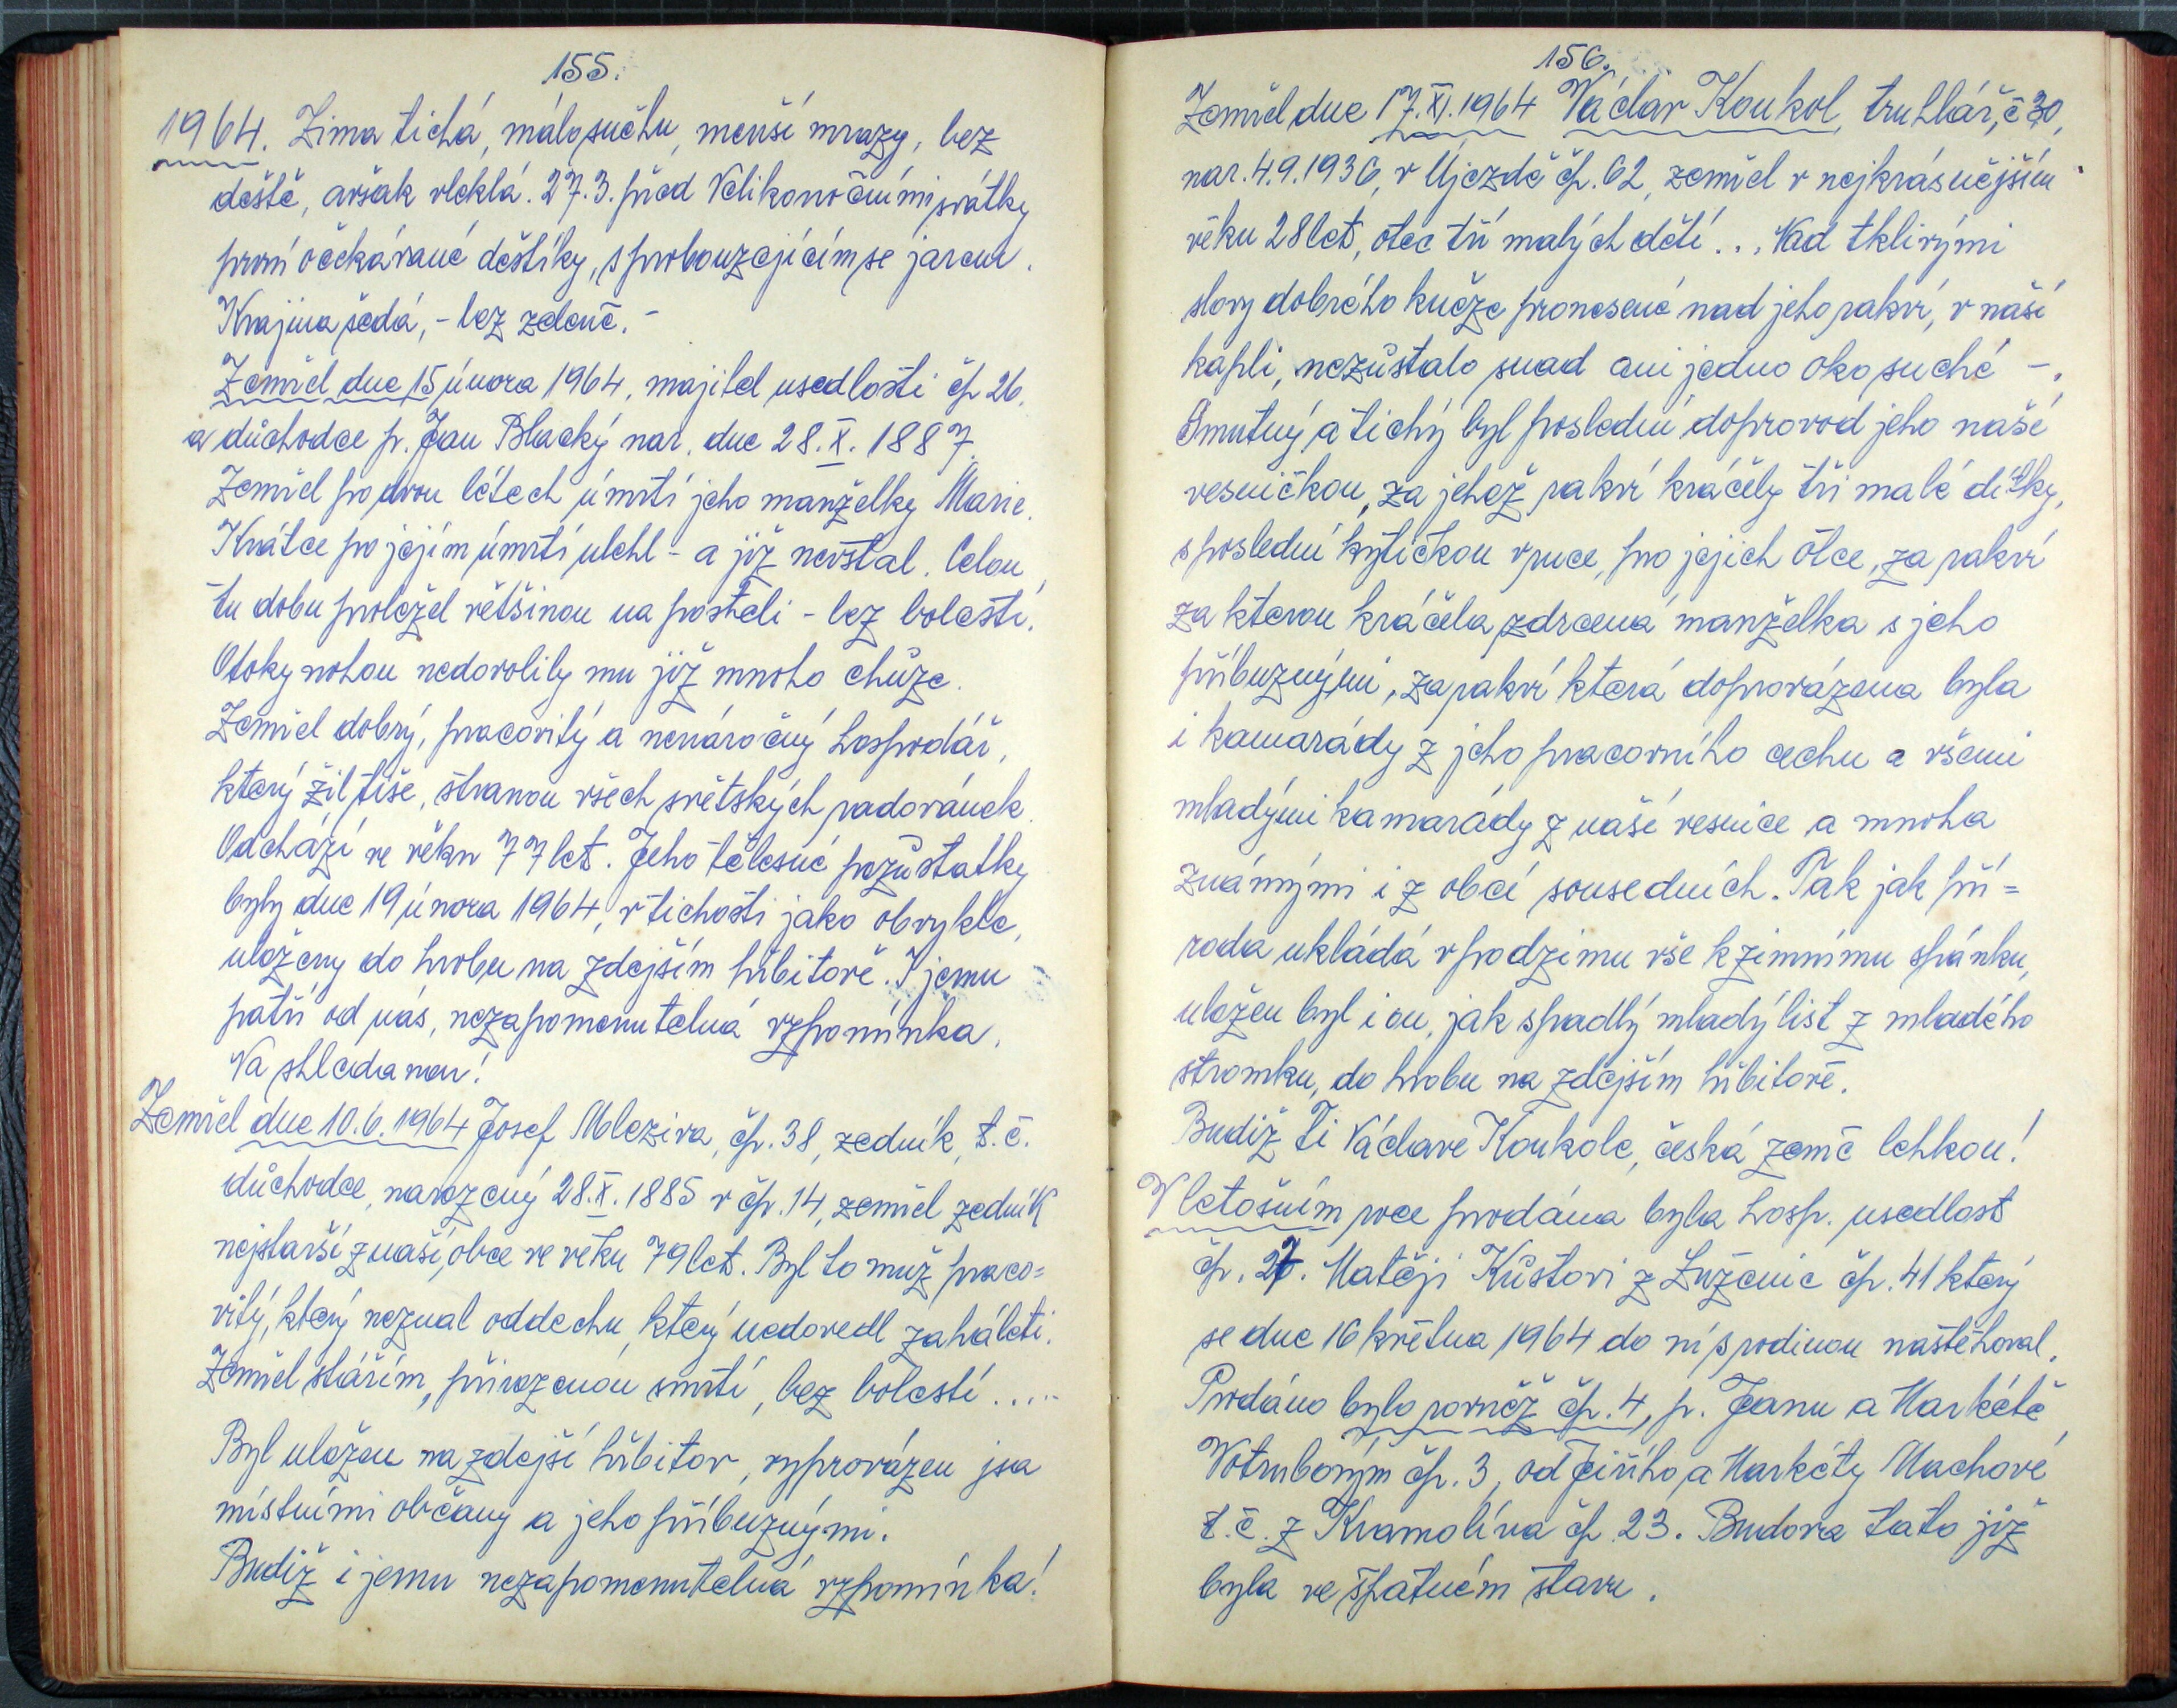 155.
1964. Zima tichá, málo sněhu, menší mrazy, bez
deště, avšak vleklá. 27.3. před Velikonočními svátky
první očekávané deštíky, s probouzejícím se jarem.
Krajina šedá, - bez zeleně. -
Zemřel dne 15 února 1964, majitel usedlosti čp 26,
a důchodce p. Jan Blacký nar. dne 28. X. 1887.
Zemřel po dvou létech úmrtí jeho manželky Marie.
Krátce po jejím úmrtí ulehl - a již nevstal. Celou
tu dobu proležel většinou na posteli - bez bolesti.
Otoky nohou nedovolily mu již mnoho chůze.
Zemřel dobrý, pracovitý a nenáročný hospodář,
který žil tiše, stranou všech světských radovánek.
Odchází ve věku 77 let. Jeho tělesné pozůstatky
byly dne 19 února 1964, v tichosti jako obvykle,
uloženy do hrobu na zdejším hřbitově. I jemu
patří od nás, nezapomenutelná vzpomínka.
Na shledanou!
Zemřel dne 10.6.1964 Josef Mleziva, čp. 38, zedník, t.č.
důchodce, narozený 28.X.1885 v čp. 14, zemřel zedník
nejstarší z naší, obce ve věku 79 let. Byl to muž praco=
vitý, který neznal oddechu, který nedovedl zaháleti.
Zemřel stářím, přirozenou smrtí, bez bolestí.....
Byl uložen na zdejší hřbitov, vyprovázen jsa
místními občany a jeho příbuznými.
Budiž i jemu nezapomenutelná vzpomínka!
156.
Zemřel dne 17.XI.1964 Václav Koukol, truhlář, č 30,
nar. 4.9.1936, v Újezdě čp. 62, zemřel v nejkrásnějším
věku 28 let, otec tří malých dětí... Nad tklivými
slovy dobrého kněze pronesené nad jeho rakví, v naší
kapli, nezůstalo snad ani jedno oko suché -.
Smutný a tichý byl poslední doprovod jeho naší
vesničkou, za jehož rakví kráčely tři malé dítky,
s poslední kytičkou v ruce, pro jejich otce, za rakví
za kterou kráčela zdrcená manželka s jeho
příbuznými, za rakví která doprovázena byla
i kamarády z jeho pracovního cechu a všemi
mladými kamarády z naší vesnice a mnoha
známými i z obcí sousedních. Tak jak pří=
roda ukládá v podzimu vše k zimnímu spánku,
uložen byl i on, jak spadlý mladý list z mladého
stromku, do hrobu na zdejším hřbitově.
Budiž Ti Václave Koukole, česká země lehkou!
V letošním roce prodána byla hosp. usedlost
čp. 27. Matěji Kůstovi z Luženic čp. 41 který
se dne 16 května 1964 do ní s rodinou nastěhoval.
Prodáno bylo rovněž čp. 4, p. Janu a Markétě
Votrubovým čp. 3, od Jiřího a Markéty Machové
t.č. z Kramolína čp. 23. Budova tato již
byla ve špatném stavu.